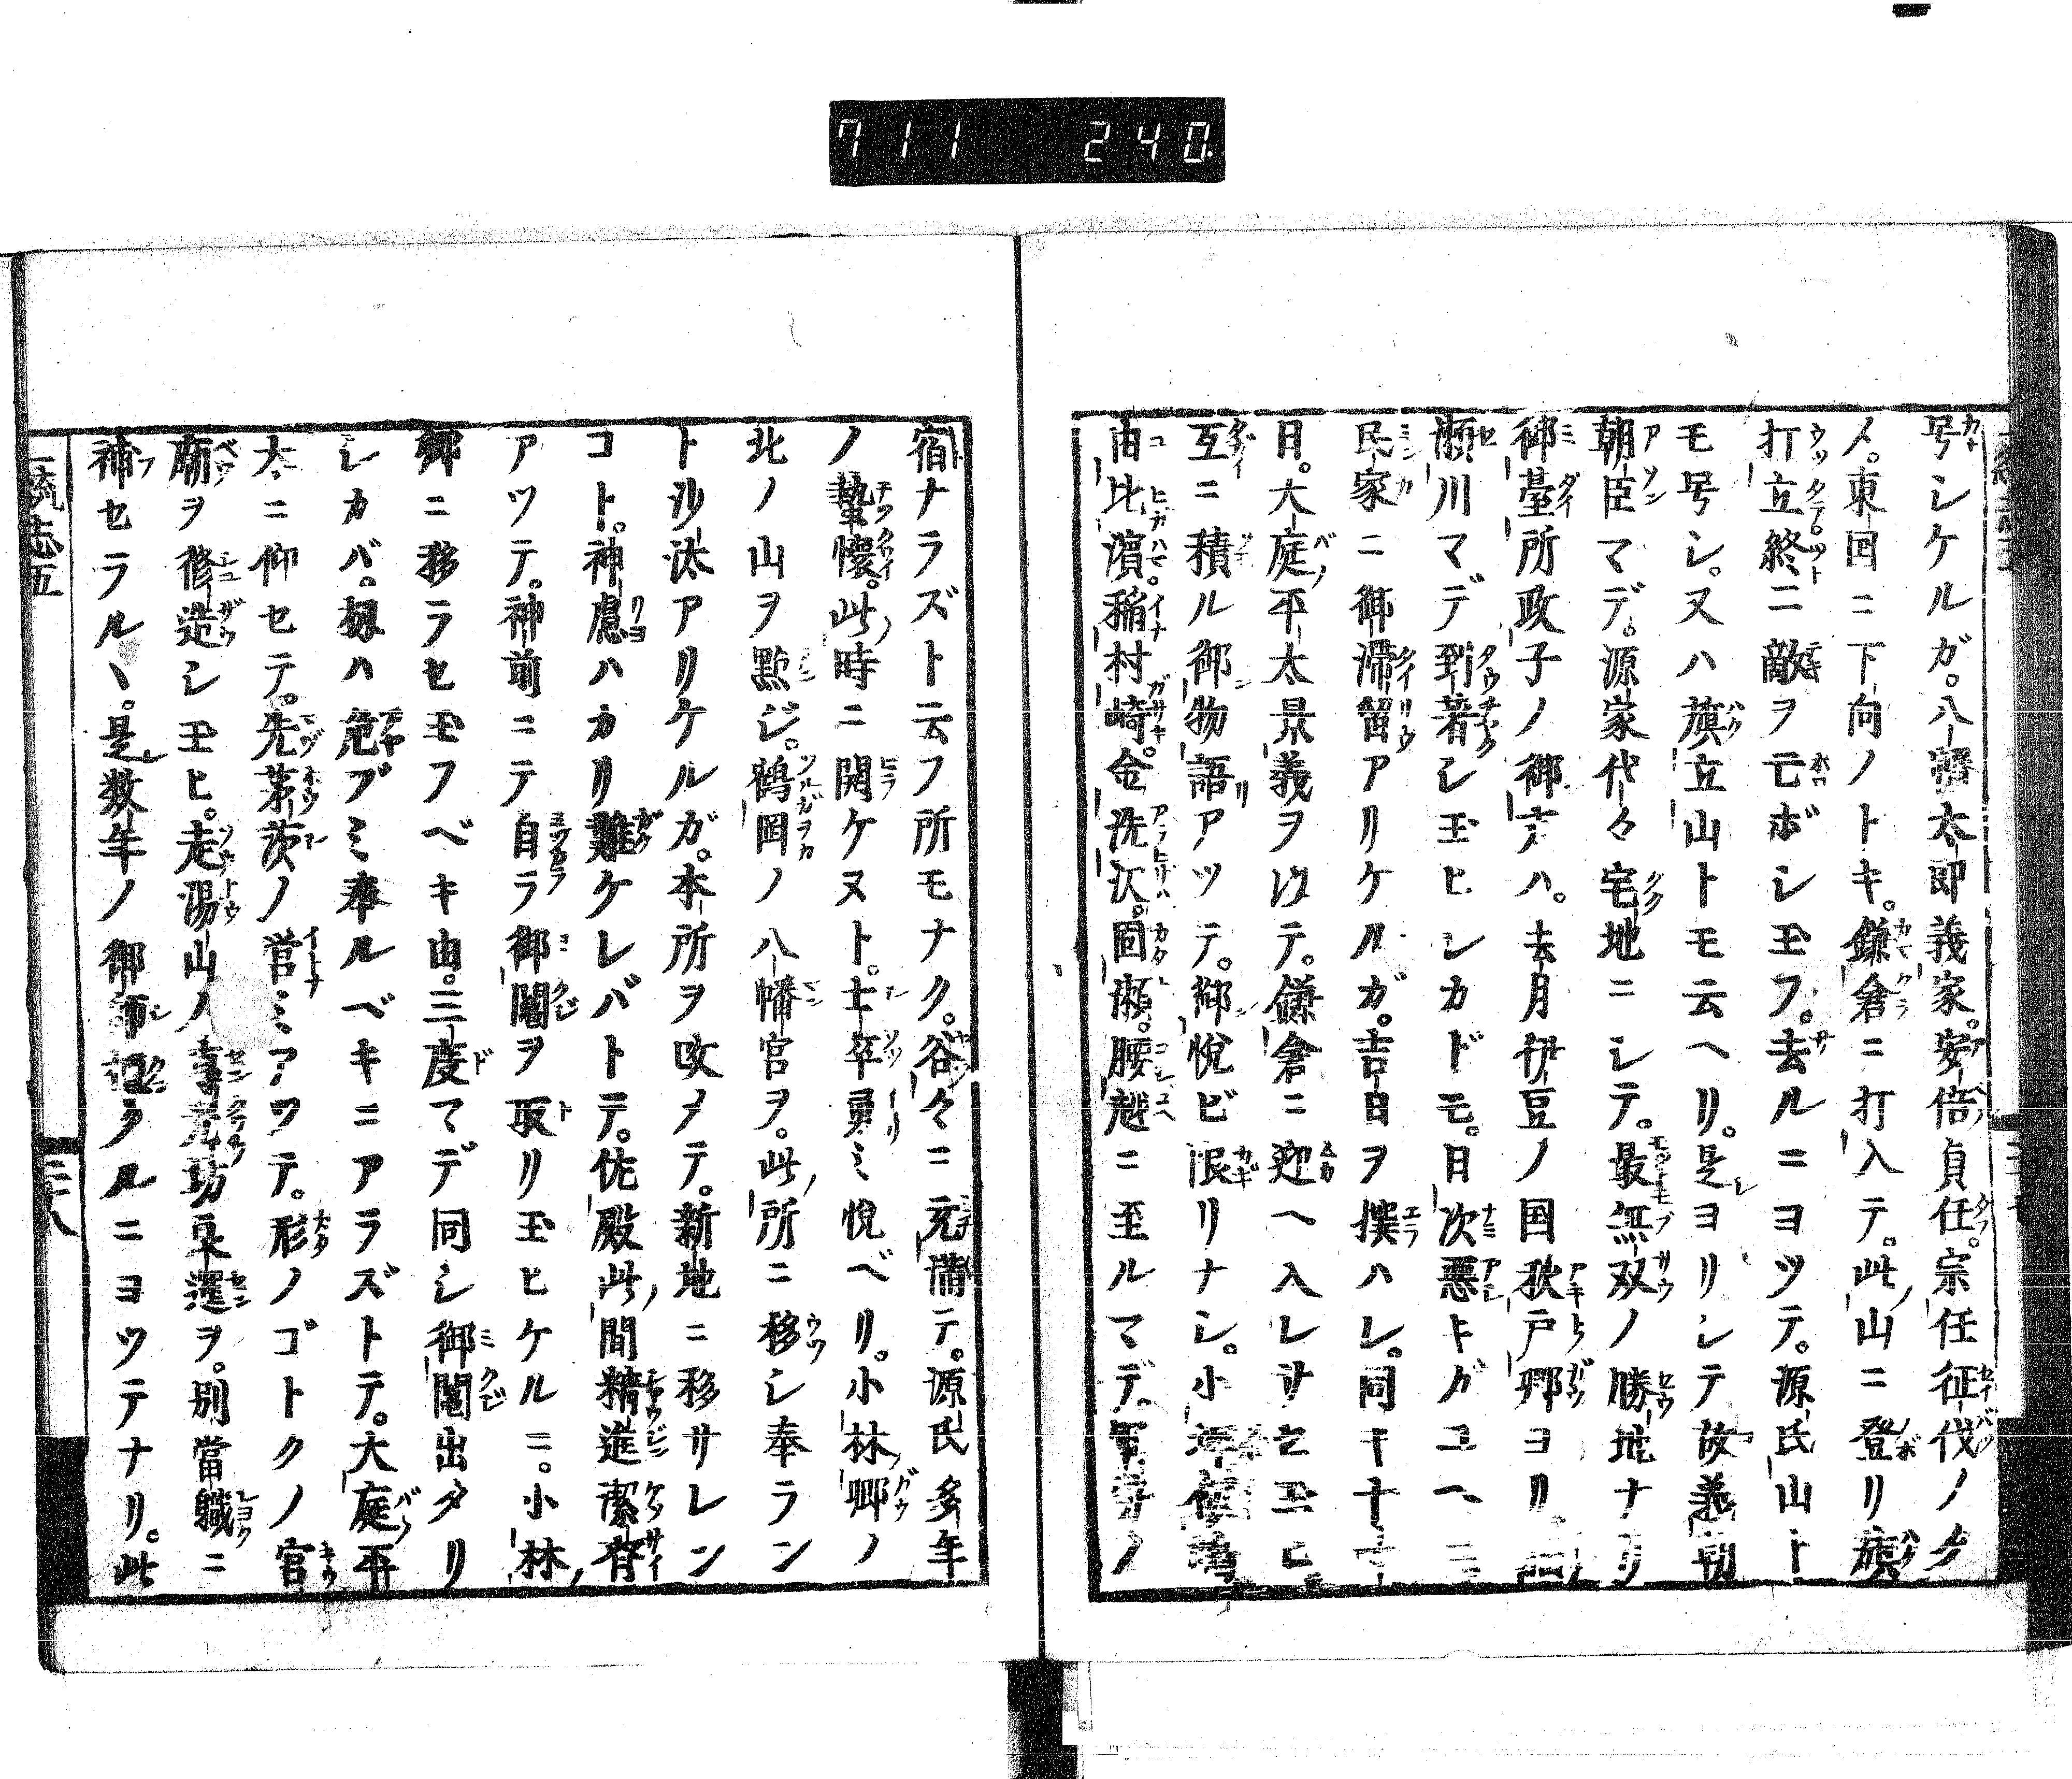 711 240
号シケルガ。八幡太郎義家。安倍貞任。宗任征伐ノタ
メ。東国ニ下向ノトキ。鎌倉ニ打入テ。此山ニ登リ旗
打立終ニ敵ヲ亡ボシ玉フ。去ルニヨツテ。源氏山ト
モ号シ。又ハ旗立山トモ云ヘリ。是ヨリシテ故義朝
朝臣マデ。源家代々宅地ニシテ。最無双ノ勝地ナリ
御臺所政子ノ御方ハ。去月伊豆ノ国秋戸郷ヨリ
瀬川マデ到着シ玉ヒシカドモ。日次悪キガユヘニ
民家ニ御滞留アリケルガ。吉日ヲ撰ハレ。同キ十一
日。大庭平太景義ヲ以テ。鎌倉ニ迎ヘ入レサセ玉ヒ。
互ニ積ル御物語アツテ。御悦ビ限リナシ。小
由比濱。稲村崎。金洗沢。固瀬。腰越ニ至ルマデ。軍勢ノ
宿ナラズト云フ所モナク。谷々ニ充満テ。源氏多年
ノ蟄懐。此時ニ開ケヌト。士卒勇ミ悦ベリ。小林郷ノ
北ノ山ヲ點ジ。鶴岡ノ八幡宮ヲ。此所ニ移シ奉ラン
ト沙汰アリケルガ。本所ヲ改メテ。新地ニ移サレン
コト。神慮ハカリ難ケレバトテ。佐殿此間精進潔斉
アツテ。神前ニテ自ラ御鬮ヲ取リ玉ヒケルニ。小林
郷ニ移ラセ玉フベキ由。三度マデ同シ御鬮出タリ
シカバ。扨ハ危ブミ奉ルベキニアラズトテ。大庭平
太ニ仰セテ。先茅茨ノ営ミアツテ。形ノゴトクノ宮
廟ヲ修造シ玉ヒ。走湯山ノ専光坊良暹ヲ。別當職ニ
補セラルヽ。是数年ノ御師檀タルニヨツテナリ。此
流志五
二十八